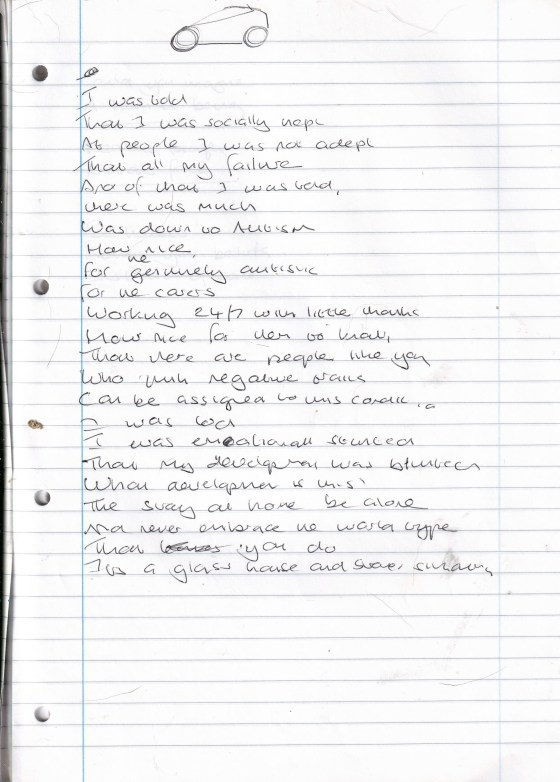 I was told
That I was socially inept
At people I was not adept
That all my failure
And of that I was told,
there was much
Was down to Autism
How nice,
for the genuinely autistic
for the carers
Working 24/7 with little thanks
How nice for them to know,
That there are people like you
Who think negative traits
Can be assigned to this
I was told
I was emotionally stunted
That my development was
What development is this?
The stay at home be alone
And never embrace the world type
That you do
Its a glass house and stones